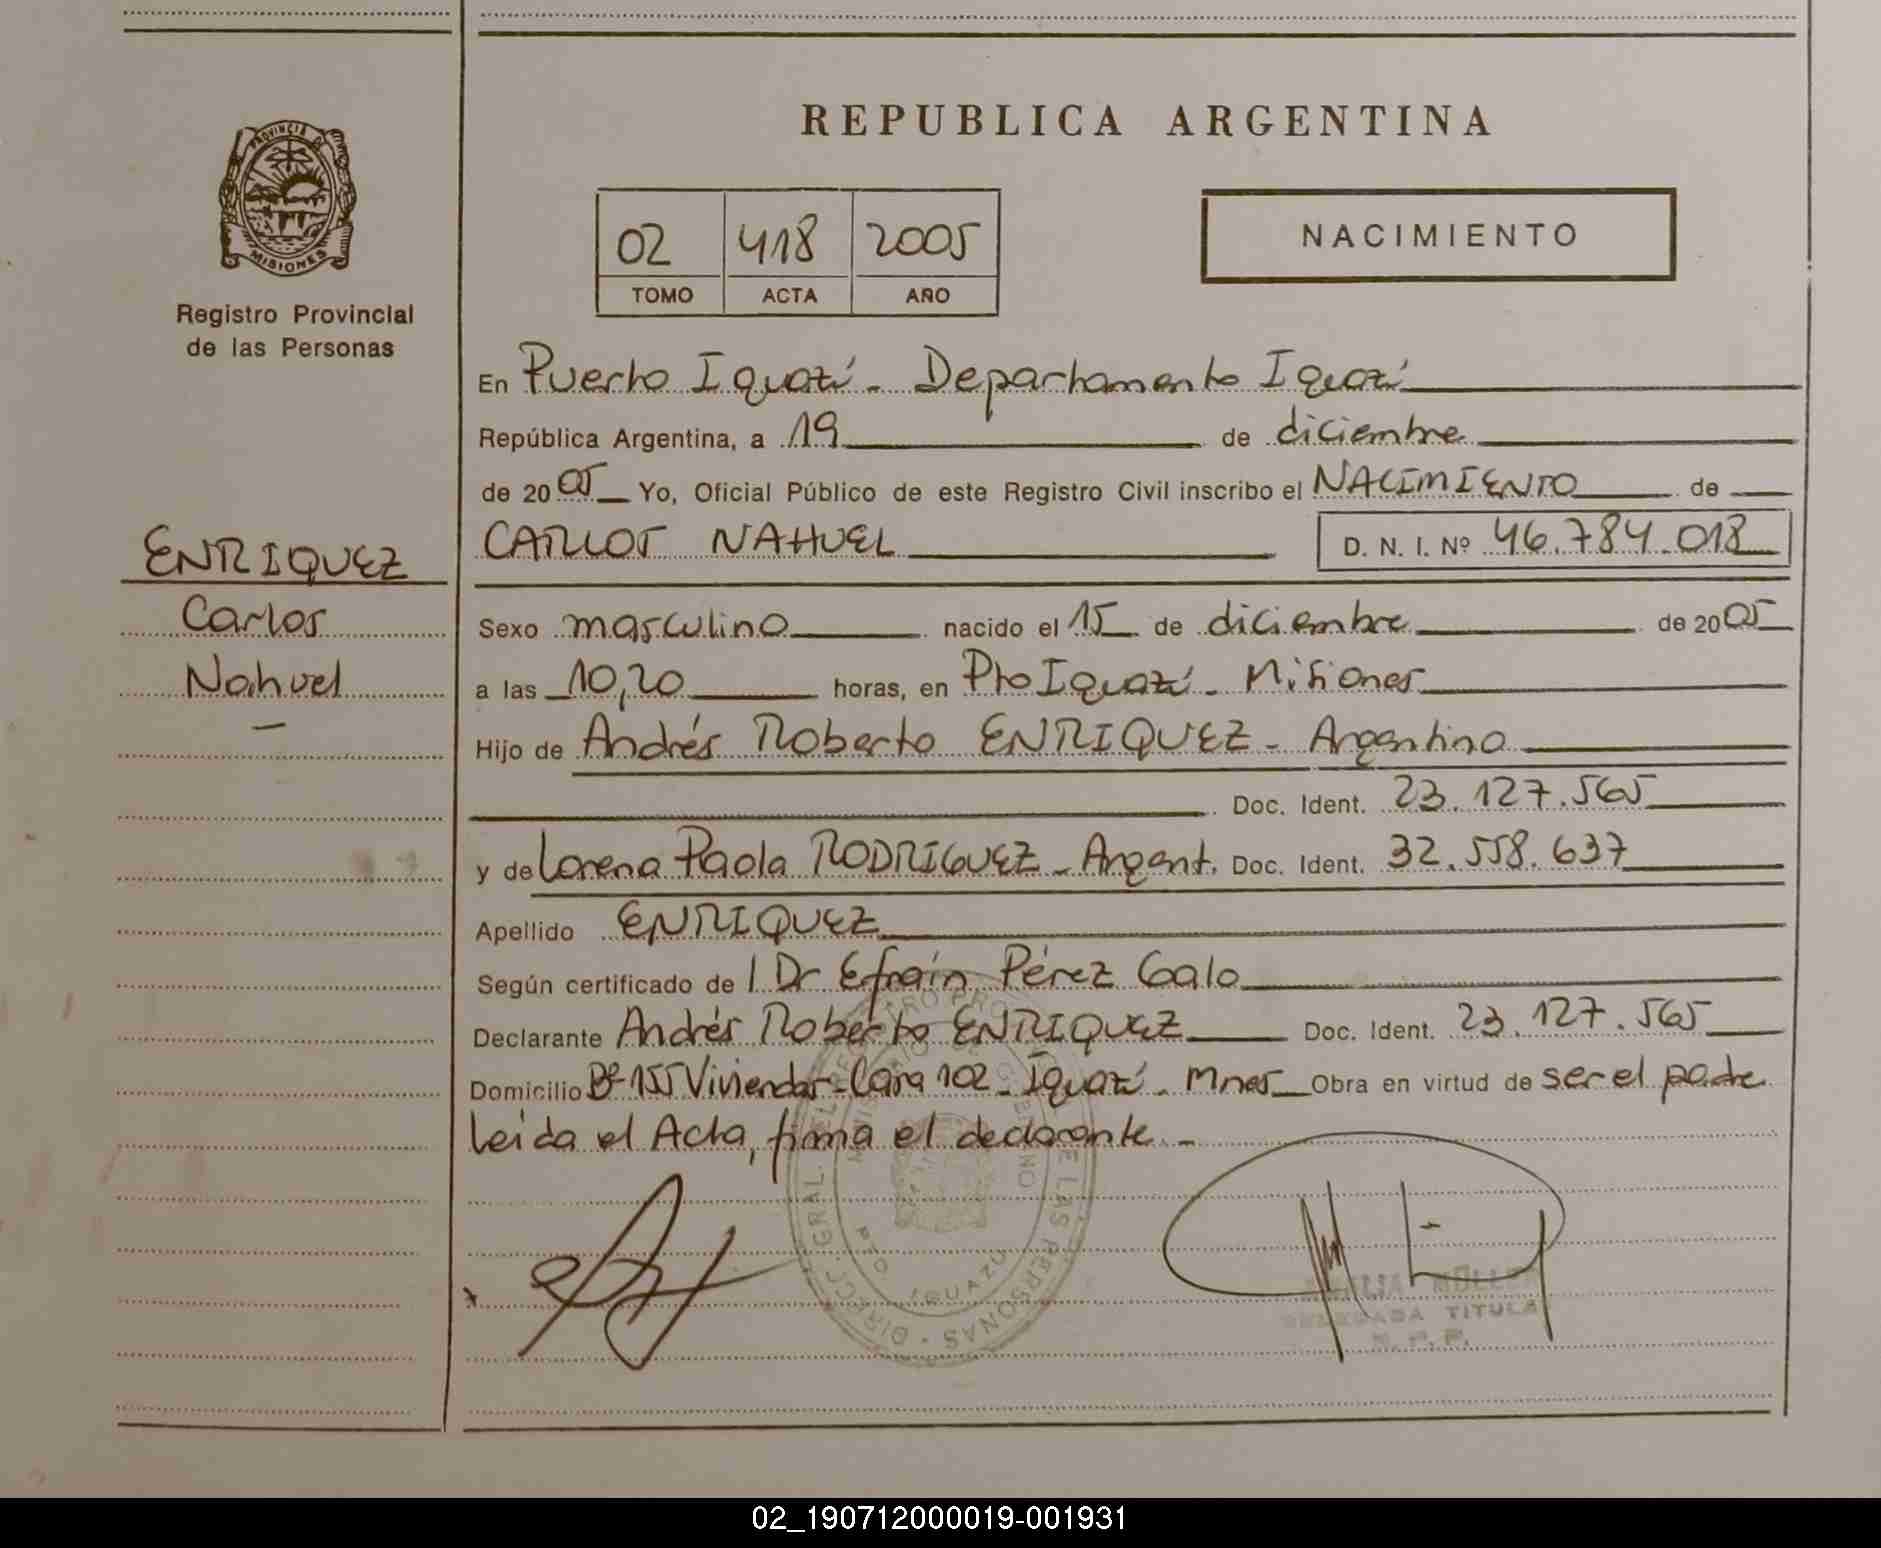 REPUBLICA ARGENTINA
PROVINCIA DE
MISIONES
Registro Provincial
de las Personas
02 418 2005
TOMO ACTA AÑO
NACIMIENTO
En Puerto Iguazú - Departamento Iguazú
República Argentina, a 19 de diciembre
de 2005 Yo, Oficial Público de este Registro Civil inscribo el NACIMIENTO de
CARLOS NAHUEL D. N. I. Nº 46.784.018
ENRIQUEZ
Carlos
Nahuel
Sexo masculino nacido el 15 de diciembre de 2005
a las 10,20 horas, en Pto Iguazú - Misiones
Hijo de Andrés Roberto ENRIQUEZ - Argentino
Doc. Ident. 23.127.565
y de Lorena Paola RODRIGUEZ - Argent. Doc. Ident. 32.558.637
Apellido ENRIQUEZ
Según certificado de l Dr Efraín Pérez Galo
Declarante Andrés Roberto ENRIQUEZ Doc. Ident. 23.127.565
Domicilio Bº 155 Viviendas - Casa 102 - Iguazú - Mnes Obra en virtud de ser el padre
Leída el Acta, firma el declarante -
MÜLLER
TITULAR
02_190712000019-001931